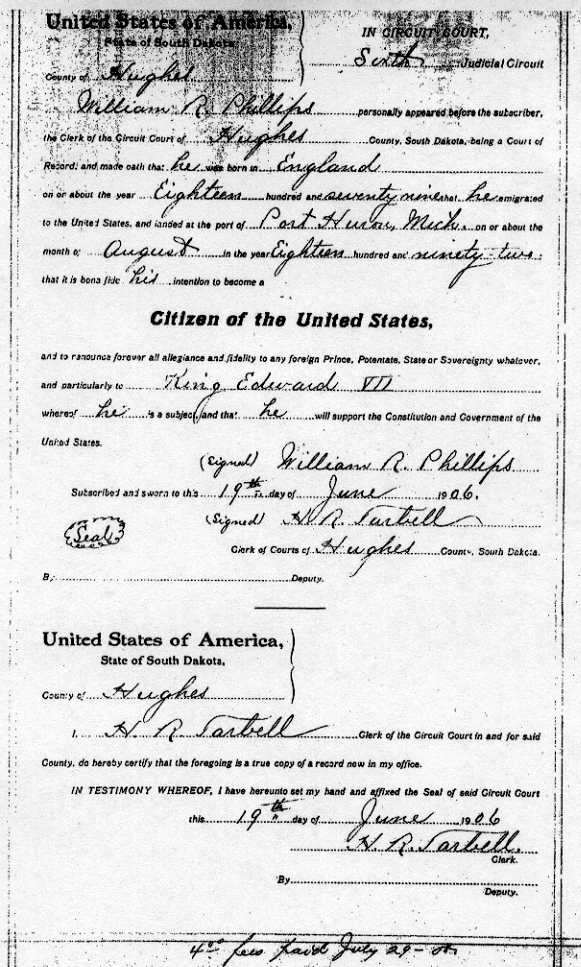 United States of America,
State of South Dakota
County of Hughes
IN CIRCUIT COURT,
Sixth Judicial Circuit
William R. Phillips personally appeared before the subscriber,
the Clerk of the Circuit Court of Hughes County, South Dakota, being a Court of
Record, and made oath that he was born in England
on or about the year Eighteen hundred and seventy nine that he emigrated
to the United States, and landed at the port of Port Huron, Mich. on or about the
month of August in the year Eighteen hundred and ninety-two.
that it is bona fide his intention to become a
Citizen of the United States,
and to renounce forever all allegiance and fidelity to any foreign Prince, Potentate, State or Sovereignty whatever,
and particularly to King Edward VII
whereof he is a subject, and that he will support the Constitution and Government of the
United States.
(Signed) William R. Phillips
Subscribed and sworn to this 19th day of June 1906.
(Signed) H. R. Tarbell
Seal
Clerk of Courts of Hughes County, South Dakota.
By Deputy.
United States of America,
State of South Dakota,
County of Hughes
I, H. R. Tarbell Clerk of the Circuit Court in and for said
County, do hereby certify that the foregoing is a true copy of a record now in my office.
IN TESTIMONY WHEREOF, I have hereunto set my hand and affixed the Seal of said Circuit Court
this 19th day of June 1906
H. R. Tarbell.
Clerk.
By
Deputy.
4 00 fees paid July 29